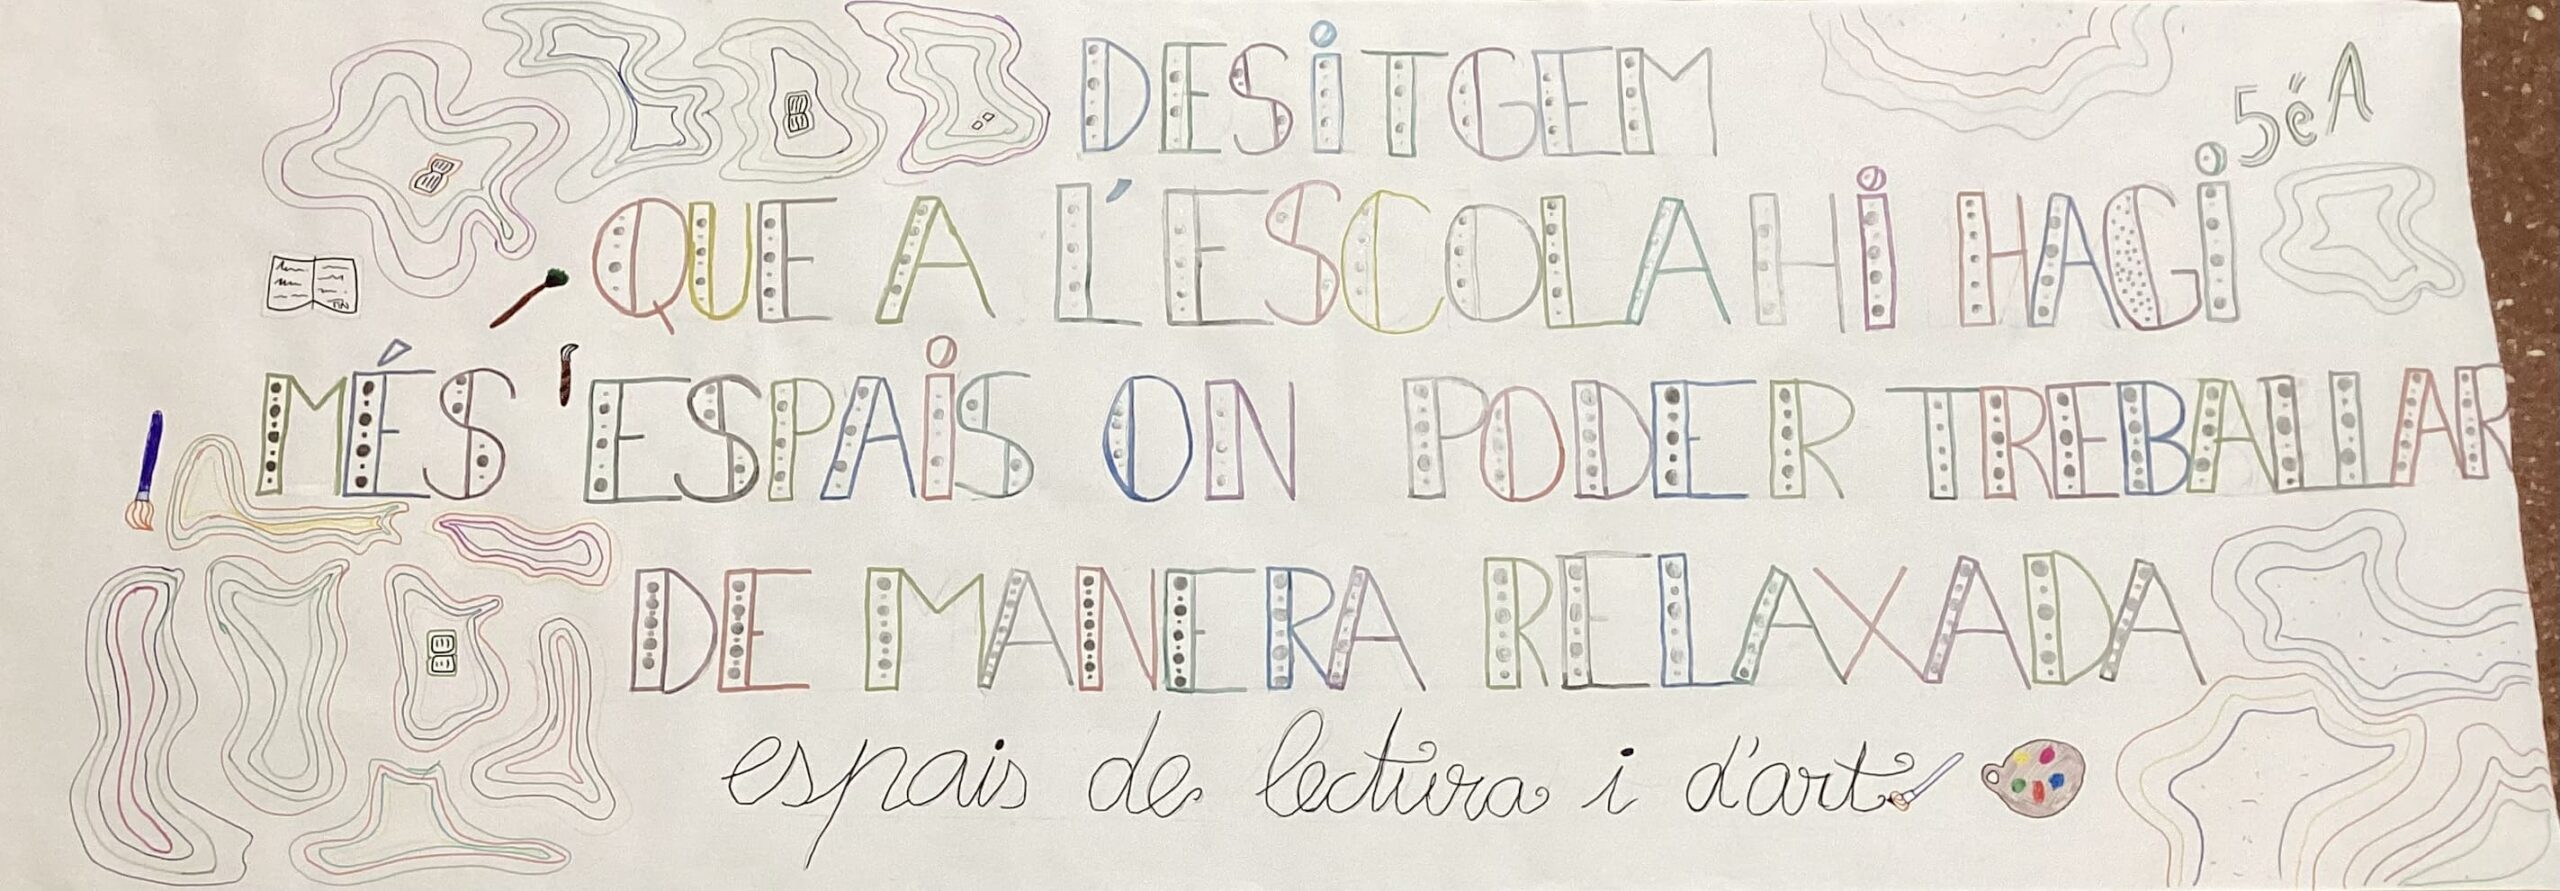 DESiTGEM
5è A
QUE A L'ESCOLA Hi HAGi
MÉS 'ESPAiS ON PODER TREBALLAR
DE MANERA RELAXADA
espais de lectura i d'art